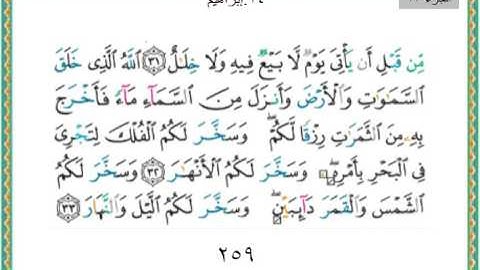 ١٤. إبراهيم
مِّن قَبْلِ أَن يَأْتِىَ يَوْمٌ لَّا بَيْعٌ فِيهِ وَلَا خِلَـٰلٌ ٣١ ٱللَّهُ ٱلَّذِى خَلَقَ
ٱلسَّمَـٰوَٰتِ وَٱلْأَرْضَ وَأَنزَلَ مِنَ ٱلسَّمَآءِ مَآءً فَأَخْرَجَ
بِهِۦ مِنَ ٱلثَّمَرَٰتِ رِزْقًا لَّكُمْ ۖ وَسَخَّرَ لَكُمُ ٱلْفُلْكَ لِتَجْرِىَ
فِى ٱلْبَحْرِ بِأَمْرِهِۦ ۖ وَسَخَّرَ لَكُمُ ٱلْأَنْهَـٰرَ ٣٢ وَسَخَّرَ لَكُمُ
ٱلشَّمْسَ وَٱلْقَمَرَ دَآئِبَيْنِ ۖ وَسَخَّرَ لَكُمُ ٱلَّيْلَ وَٱلنَّهَارَ ٣٣
٢٥٩